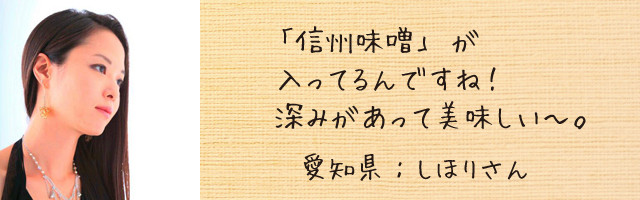 「信州味噌」が
入ってるんですね！
深みがあって美味しい～。
愛知県；しほりさん